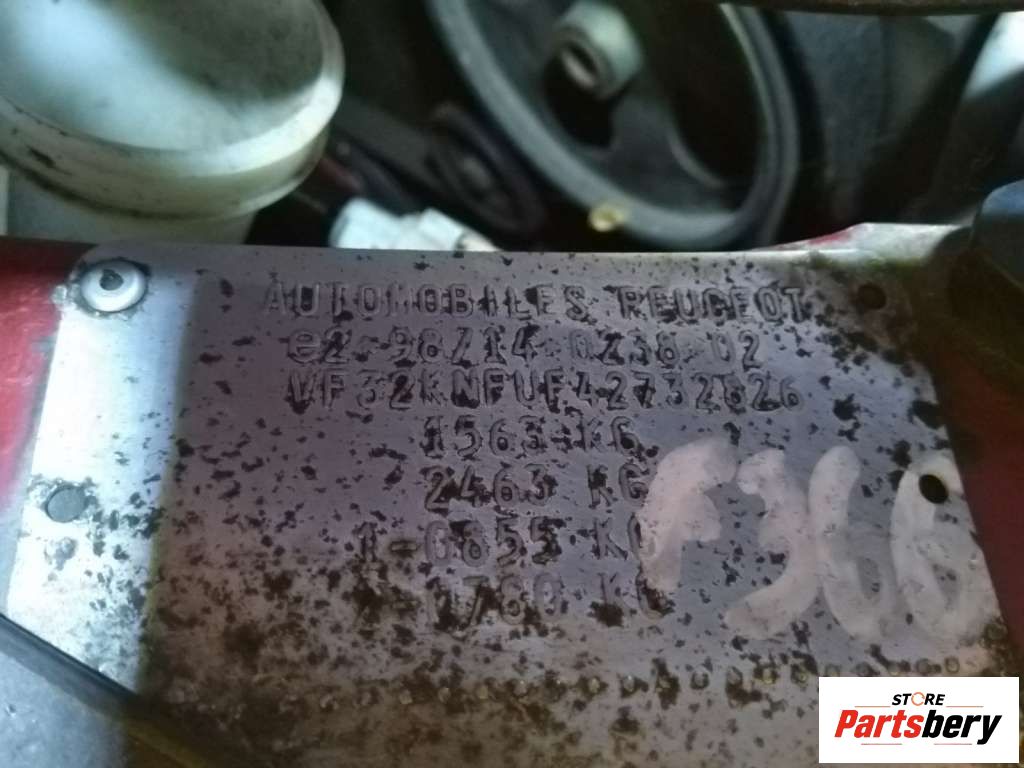 AUTOMOBILES PEUGEOT
e2*98/14*0238*02
VF32KNFUF42732826
1563 KG
2463 KG
1-0855 KG
2-0780 KG
F366
STORE
Partsbery